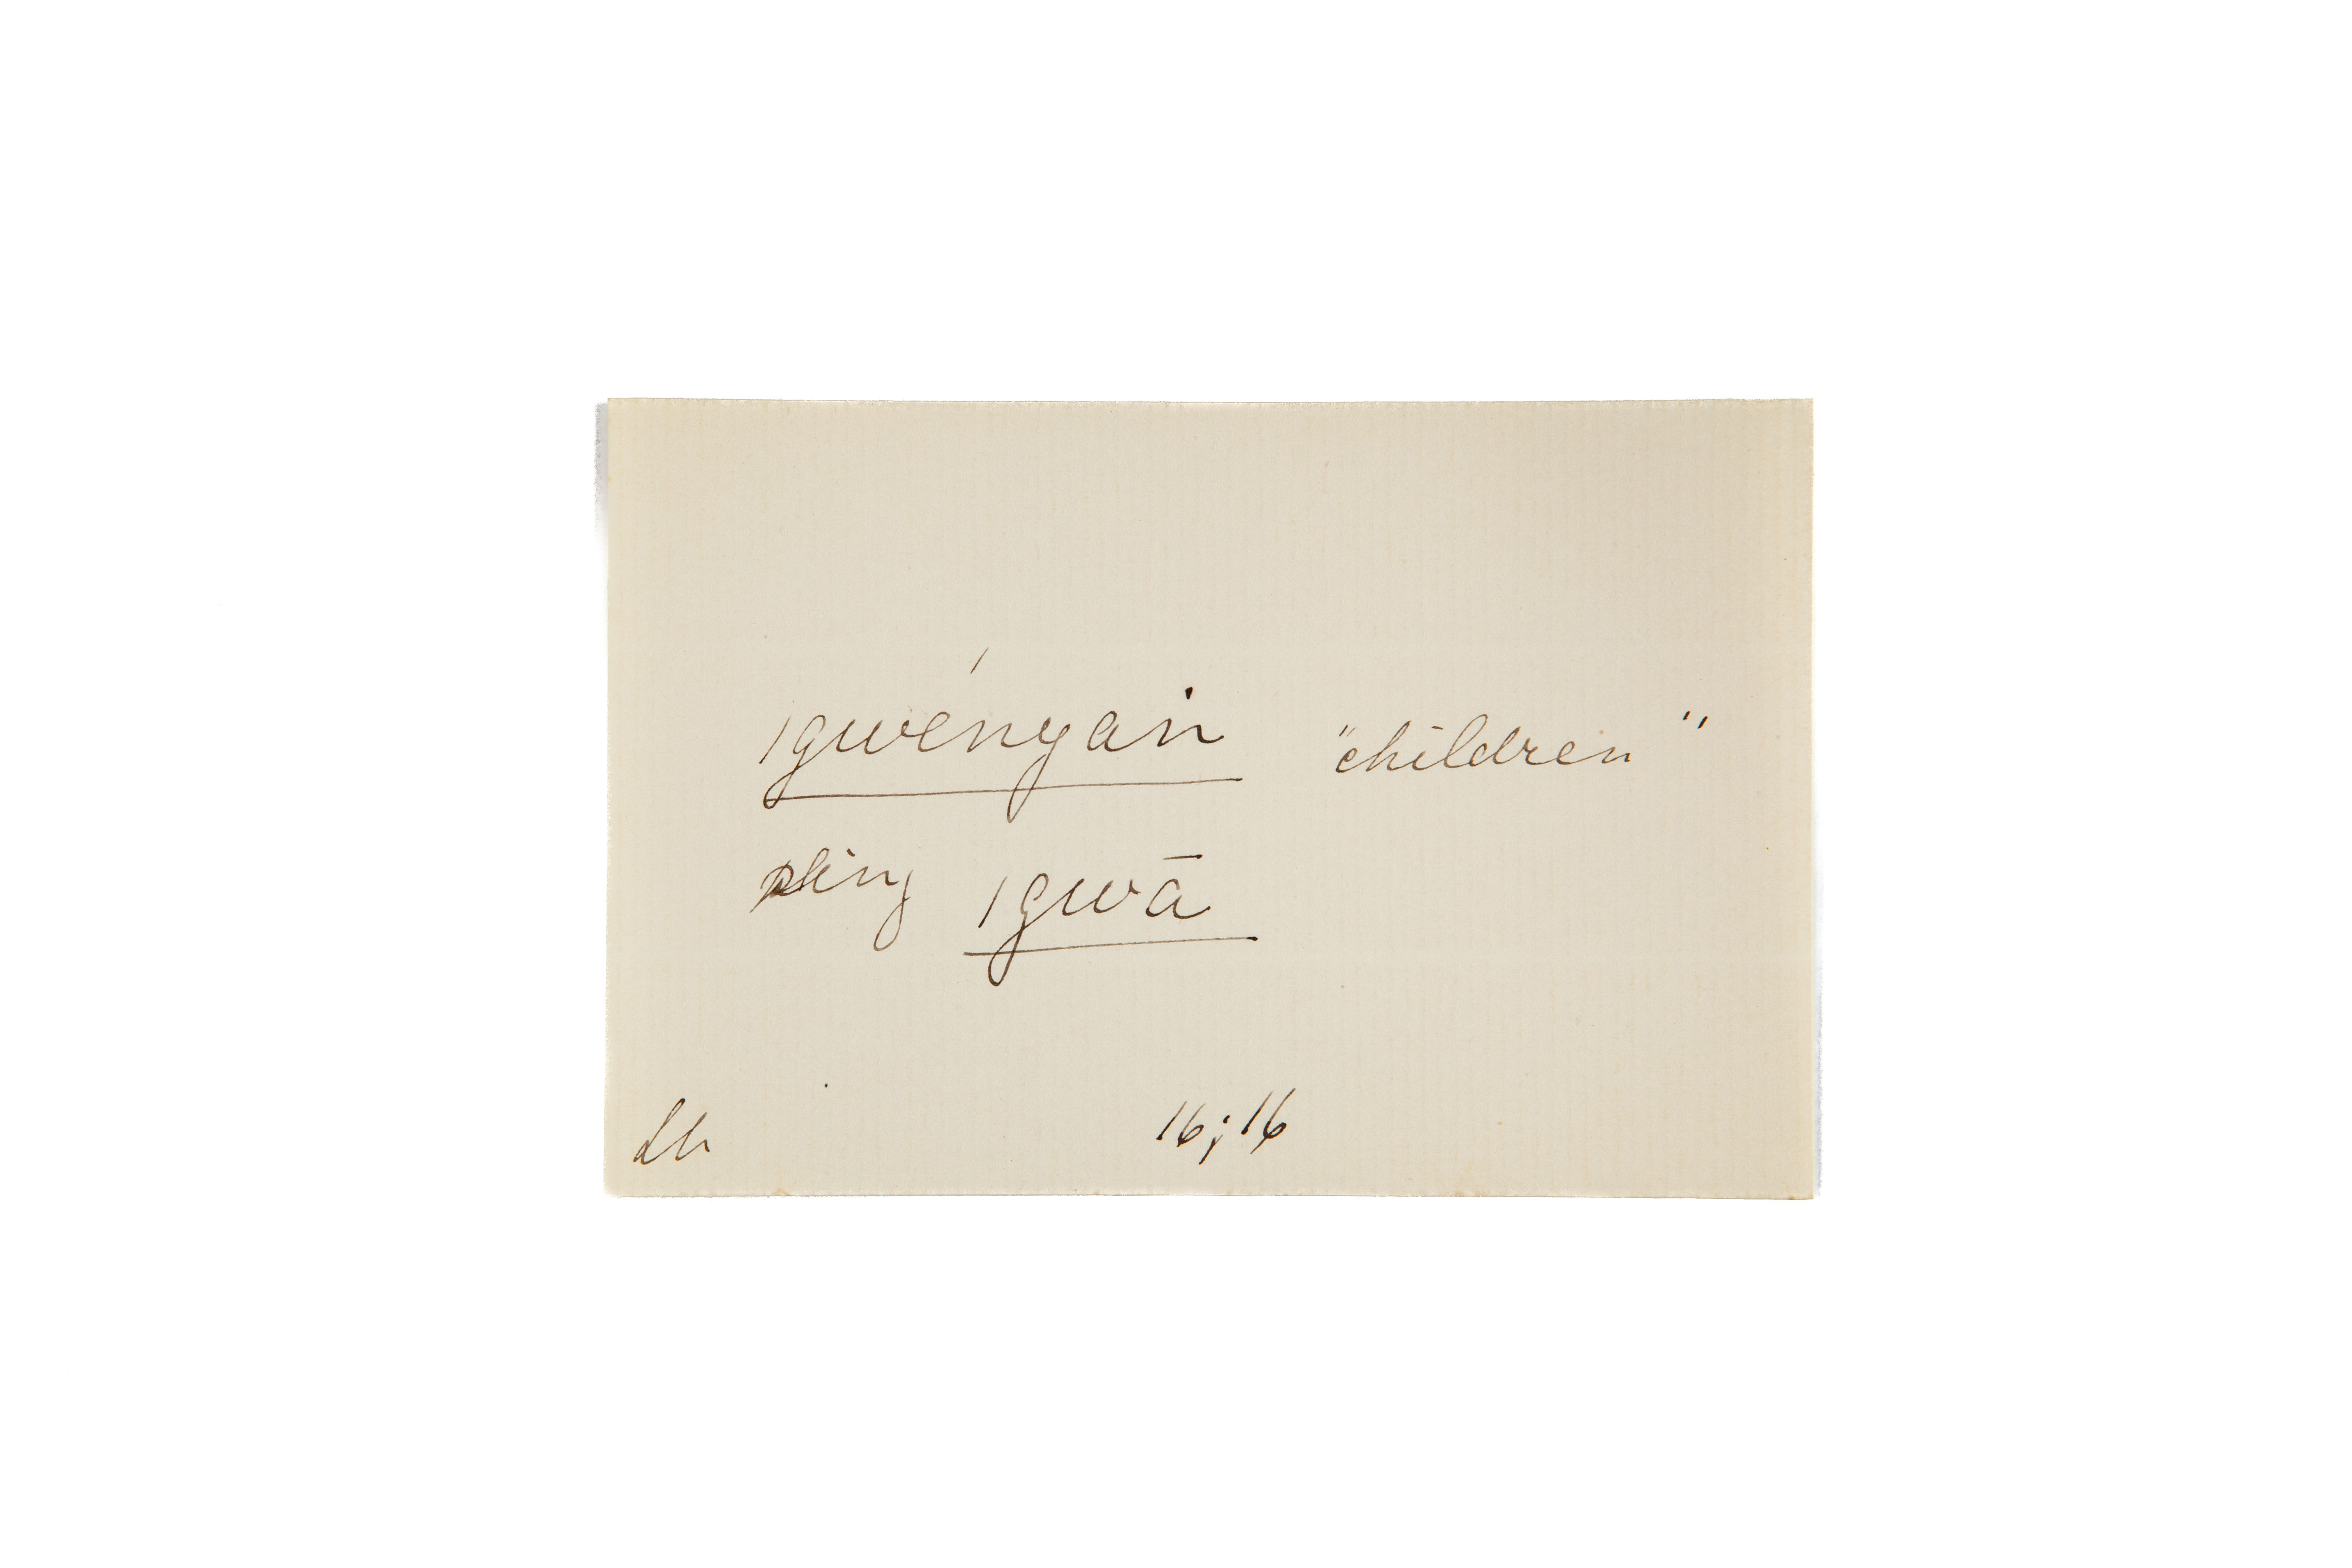 igwényan "children"
sing igwā
Lh 16; 16